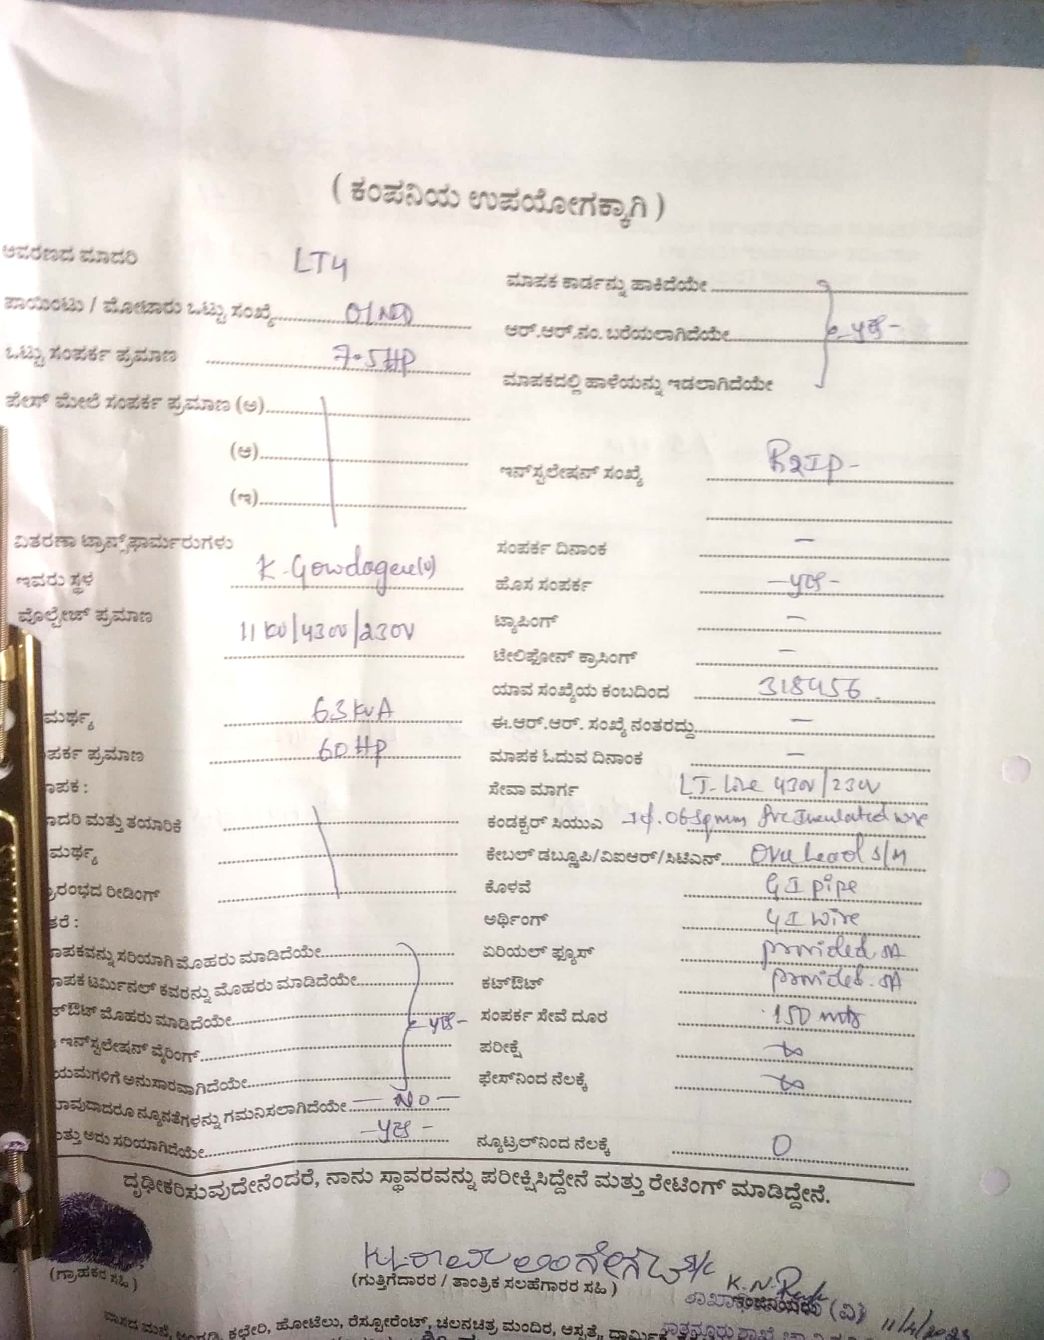 ( ಕಂಪನಿಯ ಉಪಯೋಗಕ್ಕಾಗಿ )
ಆವರಣದ ಮಾದರಿ LT4
ಪಾಯಿಂಟು / ಮೋಟಾರು ಒಟ್ಟು ಸಂಖ್ಯೆ 01 NO
ಒಟ್ಟು ಸಂಪರ್ಕ ಪ್ರಮಾಣ 7.5 HP
ಪೇಸ್ ಮೇಲೆ ಸಂಪರ್ಕ ಪ್ರಮಾಣ (ಅ)
(ಆ)
(ಇ)
ವಿತರಣಾ ಟ್ರಾನ್ಸ್‌ಫಾರ್ಮರುಗಳು
ಇವರು ಸ್ಥಳ K. Gowdagere(v)
ವೋಲ್ಟೇಜ್ ಪ್ರಮಾಣ
11 kv/430v/230v
ಮರ್ಥ್ಯ 63 kvA
ಪರ್ಕ ಪ್ರಮಾಣ 60 HP
ಾಪಕ :
ಾದರಿ ಮತ್ತು ತಯಾರಿಕೆ
ಮರ್ಥ್ಯ
್ರಾರಂಭದ ರೀಡಿಂಗ್
ತರೆ :
ಾಪಕವನ್ನು ಸರಿಯಾಗಿ ಮೊಹರು ಮಾಡಿದೆಯೇ
ಾಪಕ ಟರ್ಮಿನಲ್ ಕವರನ್ನು ಮೊಹರು ಮಾಡಿದೆಯೇ
ಟ್‌ಔಟ್ ಮೊಹರು ಮಾಡಿದೆಯೇ yes -
ಇನ್‌ಸ್ಟಲೇಷನ್ ವೈರಿಂಗ್
ಯಮಗಳಿಗೆ ಅನುಸಾರವಾಗಿದೆಯೇ
ಾವುದಾದರೂ ನ್ಯೂನತೆಗಳನ್ನು ಗಮನಿಸಲಾಗಿದೆಯೇ — No —
ತ್ತು ಅದು ಸರಿಯಾಗಿದೆಯೇ - yes -
ಮಾಪಕ ಕಾರ್ಡನ್ನು ಹಾಕಿದೆಯೇ
ಆರ್.ಆರ್.ನಂ. ಬರೆಯಲಾಗಿದೆಯೇ yes -
ಮಾಪಕದಲ್ಲಿ ಹಾಳೆಯನ್ನು ಇಡಲಾಗಿದೆಯೇ
ಇನ್‌ಸ್ಟಲೇಷನ್ ಸಂಖ್ಯೆ
ಸಂಪರ್ಕ ದಿನಾಂಕ —
ಹೊಸ ಸಂಪರ್ಕ - yes -
ಟ್ಯಾಪಿಂಗ್ —
ಟೇಲಿಫೋನ್ ಕ್ರಾಸಿಂಗ್ —
ಯಾವ ಸಂಖ್ಯೆಯ ಕಂಬದಿಂದ 318456
ಈ.ಆರ್.ಆರ್. ಸಂಖ್ಯೆ ನಂತರದ್ದು —
ಮಾಪಕ ಓದುವ ದಿನಾಂಕ —
ಸೇವಾ ಮಾರ್ಗ LT- Line 430v/230v
ಕಂಡಕ್ಟರ್ ಸಿಯುಎ 06 Sqmm Pvc Insulated wire
ಕೇಬಲ್ ಡಬ್ಲ್ಯೂಪಿ/ವಿಐಆರ್/ಸಿಟಿಎನ್ Over head S/M
ಕೊಳವೆ G I pipe
ಅರ್ಥಿಂಗ್ G I wire
ಏರಿಯಲ್ ಫ್ಯೂಸ್ provided
ಕಟ್‌ಔಟ್ provided
ಸಂಪರ್ಕ ಸೇವೆ ದೂರ 150 mts
ಪರೀಕ್ಷೆ ∞
ಫೇಸ್‌ನಿಂದ ನೆಲಕ್ಕೆ ∞
ನ್ಯೂಟ್ರಲ್‌ನಿಂದ ನೆಲಕ್ಕೆ 0
ದೃಢೀಕರಿಸುವುದೇನೆಂದರೆ, ನಾನು ಸ್ಥಾವರವನ್ನು ಪರೀಕ್ಷಿಸಿದ್ದೇನೆ ಮತ್ತು ರೇಟಿಂಗ್ ಮಾಡಿದ್ದೇನೆ.
(ಗ್ರಾಹಕರ ಸಹಿ)
(ಗುತ್ತಿಗೆದಾರರ / ತಾಂತ್ರಿಕ ಸಲಹೆಗಾರರ ಸಹಿ)
K. N.
(ವಿ)
ಕಛೇರಿ, ಹೋಟೆಲು, ರೆಸ್ಟೋರೆಂಟ್, ಚಲನಚಿತ್ರ ಮಂದಿರ, ಆಸ್ಪತ್ರೆ,